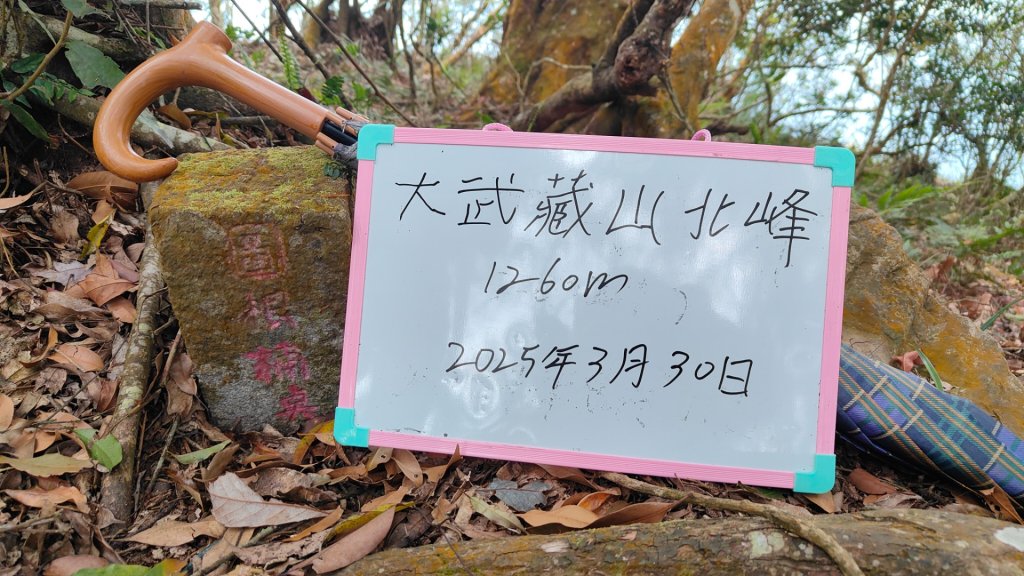 圖根補點
大武藏山北峰
1260m
2025年3月30日